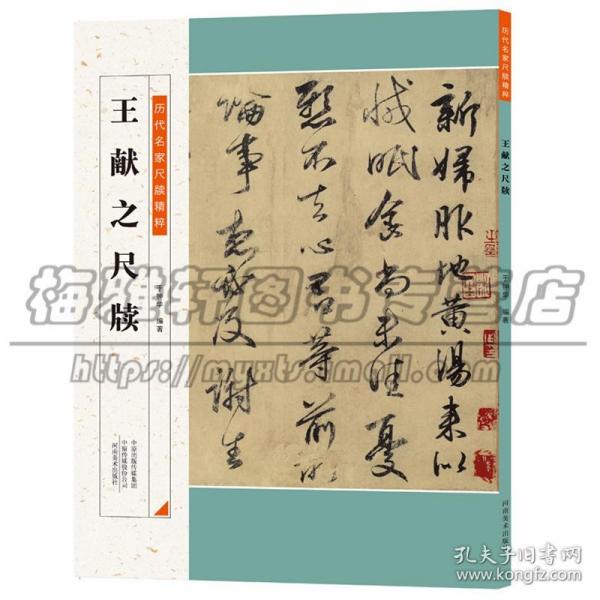 历代名家尺牍精粹
王献之尺牍
编著
中原出版传媒集团
中原传媒股份公司
河南美术出版社
新婦服地黄湯来似
减眠食尚未佳憂
懸不去心君等前所
論事想必及謝生
历代名家尺牍精粹
王献之尺牍
编著
河南美术出版社
梅雅轩图书专营店
https://myxts.tmall.com/
孔夫子旧书网
www.kongfz.com